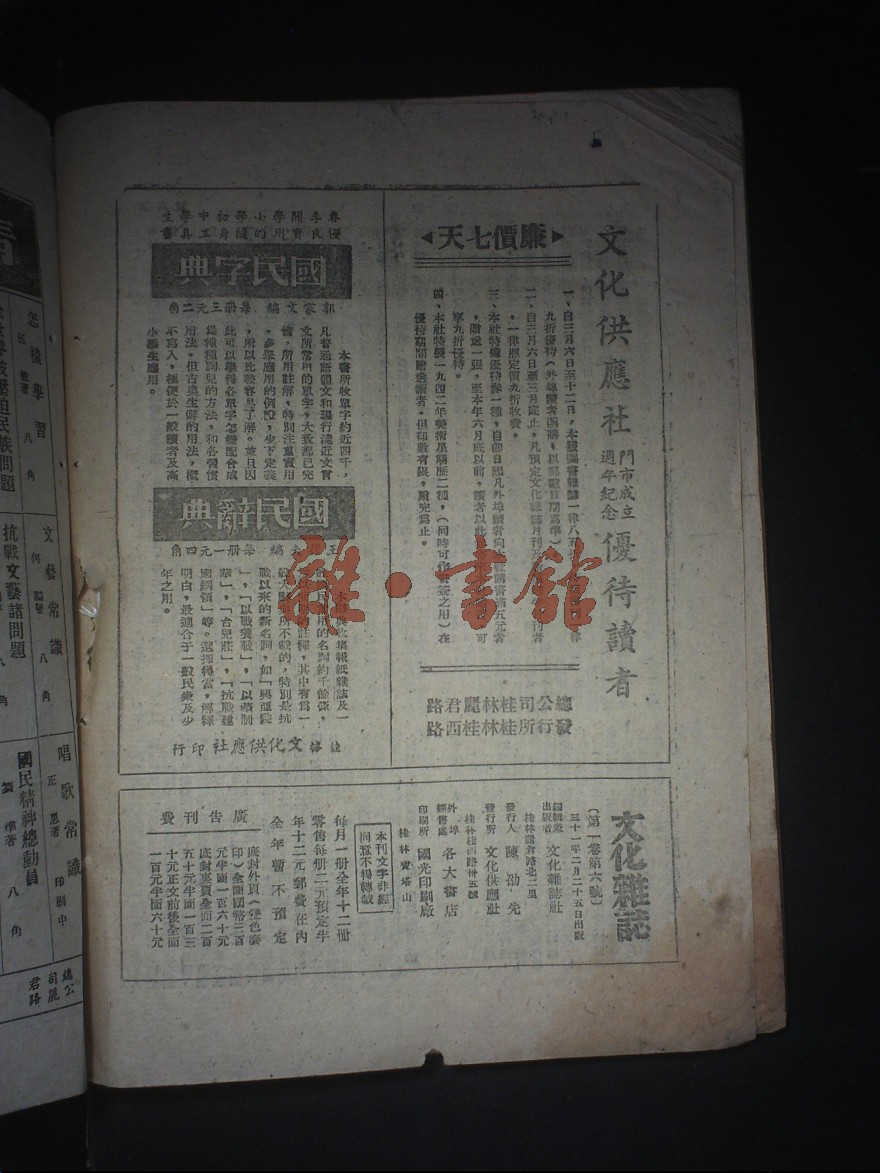 文化供應社
門市成立
週年紀念
優待讀者
廉價七天
一、自三月六日至十二日,本版圖書雜誌一律八五折
九折優待(外埠讀者函購,以郵戳日期為準)
二、自三月六日至三月底止,凡預定文化雜誌月刊及
,一律照定價九折收費。
三、本社特備優待券一種,自即日起凡外埠讀者向本社購書滿五元者
,贈送一張,至本年六月底以前,讀者以此
享九折優待。
四、本社特製一九四二年美術星期曆二種,(同時可作書簽之用)在
優待期間贈送讀者,但印數有限,贈完為止。
總公司桂林麗君路
發行所桂林桂西路
春季開學小學初中學生
優良實用的隨身工具書
國民字典
郭家文編 每册三元二角
本書所收單字約近四千,
凡普通語體文和現行淺近文言
文所常用的單字,大致都已完
備,所用註解,特別注重實用
,多舉應用的例證,少下定義
,所以比較容易了解。並且因
此可以學得各單字怎樣配合成
為種種詞兒的方法,和各習慣
用法。但古奧生僻的用法,概
不寫入,極便於一般讀者及高
小學生應用。
國民辭典
編 每册一元四角
本辭典
民應用的名詞約千餘條,
的註釋,其中有為一
般大辭典所不載的,特別是抗
戰以來的新名詞,如「興亞院
」,「以戰養戰」,「以華制
華」,「台兒莊」,「抗戰建
國綱領」等。選擇精當,解釋
明白,最適合于一般民衆及少
年之用。
文化供應社印行
文化雜誌
(第一卷第六號)
三十一年二月二十五日出版
編輯兼
出版者 文化雜誌社
桂林麗君路北三里
發行人 陳劭先
發行所 文化供應社
桂林桂西路卅五號
外埠
經售處 各大書店
印刷所 國光印刷廠
桂林 寶塔山
本刊文字非經
同意不得轉載
每月一册全年十二册
零售每册二元預定半
年十二元郵費在內
全年暫不預定
廣告刊費
底封外頁(雙色套
印)全面國幣三百
元半面一百六十元
底封裏頁全面二百
五十元半面一百三
十元正文前後全面
一百元半面六十元
怎樣學習
八角
文藝常識
何 編著 八角
唱歌常識
印刷中
全世界被壓迫民族問題
抗戰文藝諸問題
國民精神總動員
著 八角
總公
司麗
君路
雜·書館